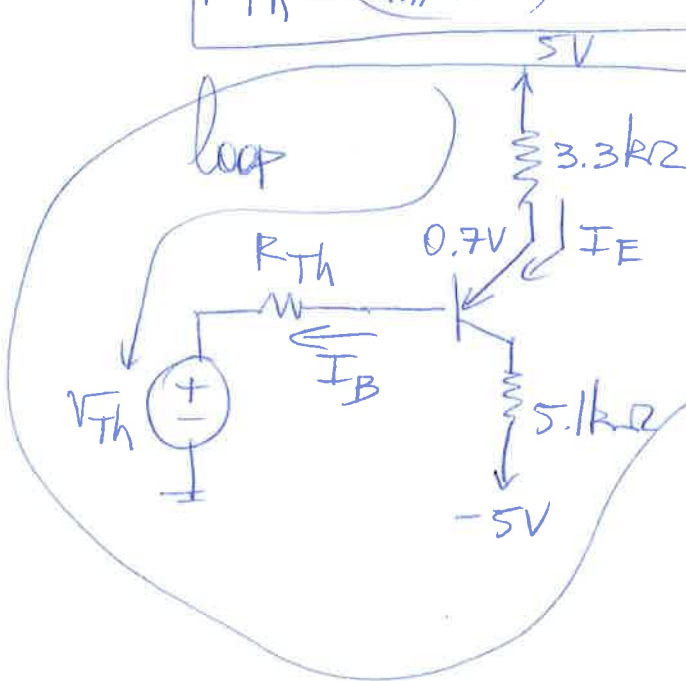 5V
loop
3.3kΩ
0.7V
I_E
R_Th
I_B
V_Th
5.1kΩ
-5V